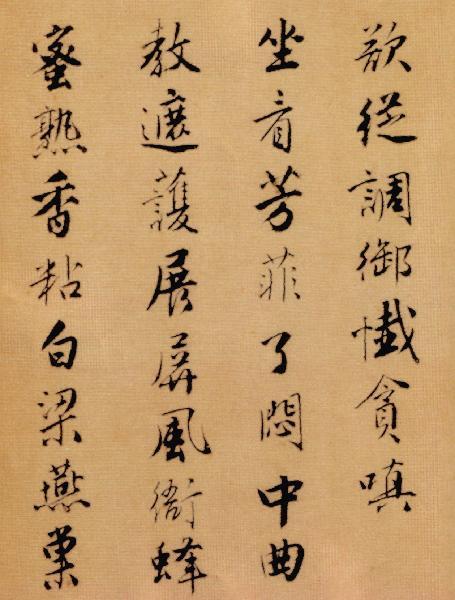 欲從調御懺貪嗔
坐看芳菲了悶中曲
教遮護展屏風衙蜂
蜜熟香粘白梁燕巢